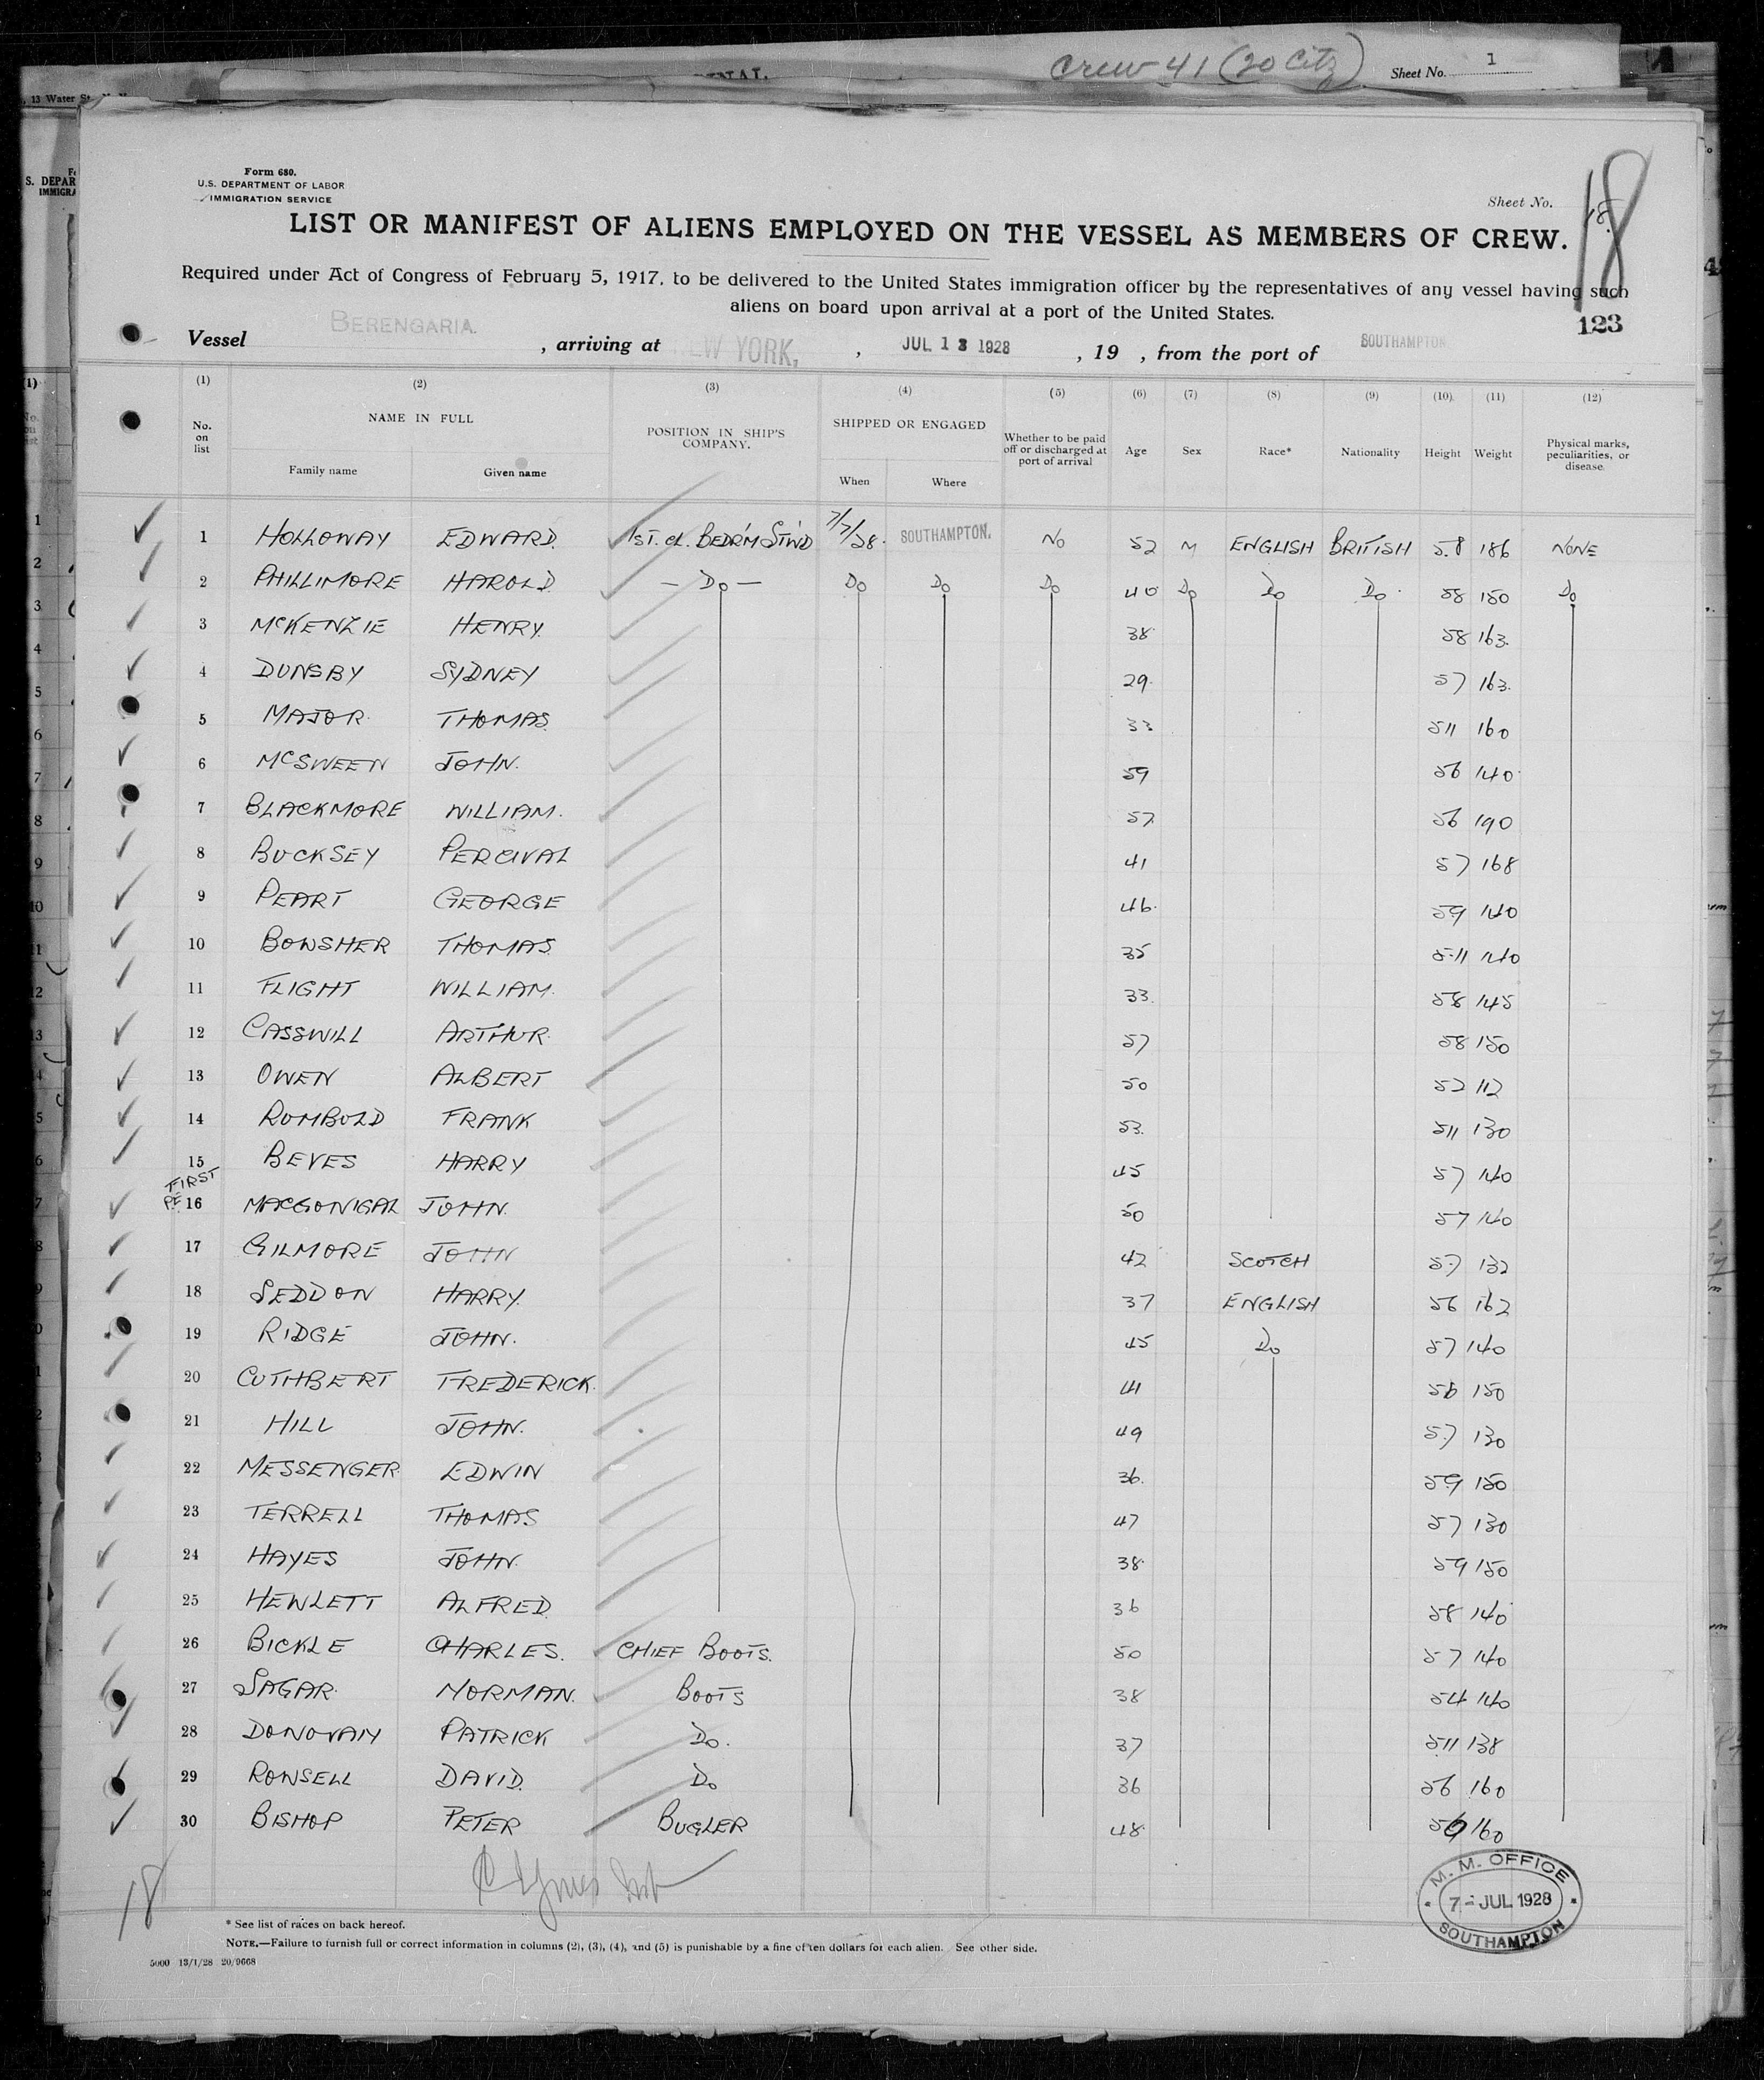 Crew 41 (20 Citz) Sheet No. 1
13 Water St.
Form 680.
U.S. DEPARTMENT OF LABOR
IMMIGRATION SERVICE
Sheet No. 18
LIST OR MANIFEST OF ALIENS EMPLOYED ON THE VESSEL AS MEMBERS OF CREW.
Required under Act of Congress of February 5, 1917, to be delivered to the United States immigration officer by the representatives of any vessel having such
aliens on board upon arrival at a port of the United States.
123
Vessel BERENGARIA. , arriving at NEW YORK, , JUL 13 1928 , 19 , from the port of SOUTHAMPTON.
(1) (2) (3) (4) (5) (6) (7) (8) (9) (10) (11) (12)
No. on list NAME IN FULL Family name Given name POSITION IN SHIP'S COMPANY. SHIPPED OR ENGAGED When Where Whether to be paid off or discharged at port of arrival Age Sex Race* Nationality Height Weight Physical marks, peculiarities, or disease.
1 HOLLOWAY EDWARD. 1ST. CL. BEDR'M ST'W'D 7/7/28. SOUTHAMPTON. NO 52 M ENGLISH BRITISH 5.8 186 NONE
2 PHILLIMORE HAROLD. - DO - DO DO DO 40 DO DO DO 58 150 DO
3 MCKENZIE HENRY. 38 58 163.
4 DUNSBY SYDNEY 29. 57 163.
5 MAJOR. THOMAS. 33 511 160
6 MCSWEEN JOHN. 59 56 140
7 BLACKMORE WILLIAM. 57 56 190
8 BUCKSEY PERCIVAL 41 57 168
9 PEART GEORGE 46. 59 140
10 BOWSHER THOMAS. 35 5-11 140
11 FLIGHT WILLIAM. 33. 58 145
12 CASSWILL ARTHUR. 57 58 150
13 OWEN ALBERT 50 52 112
14 RUMBOLD FRANK 53. 511 130
15 BEVES HARRY 45 57 140
FIRST
16 MACGONIGAL JOHN. 50 57 140
17 GILMORE JOHN 42 SCOTCH 57 132
18 SEDDON HARRY. 37 ENGLISH 56 162
19 RIDGE JOHN. 45 DO 57 140
20 CUTHBERT FREDERICK. 41 56 150
21 HILL JOHN. 49 57 130
22 MESSENGER EDWIN 36. 59 150
23 TERRELL THOMAS 47 57 130
24 HAYES JOHN. 38. 59 150
25 HEWLETT ALFRED. 36 58 140
26 BICKLE CHARLES. CHIEF BOOTS. 50 57 140
27 SAGAR. NORMAN. BOOTS 38 54 140
28 DONOVAN PATRICK DO. 37 511 138
29 ROWSELL DAVID. DO 36 56 160
30 BISHOP PETER BUGLER 48. 160
18
M. M. OFFICE
7 - JUL 1928
SOUTHAMPTON
* See list of races on back hereof.
NOTE.—Failure to furnish full or correct information in columns (2), (3), (4), and (5) is punishable by a fine of ten dollars for each alien. See other side.
5000 13/1/28 20/9668